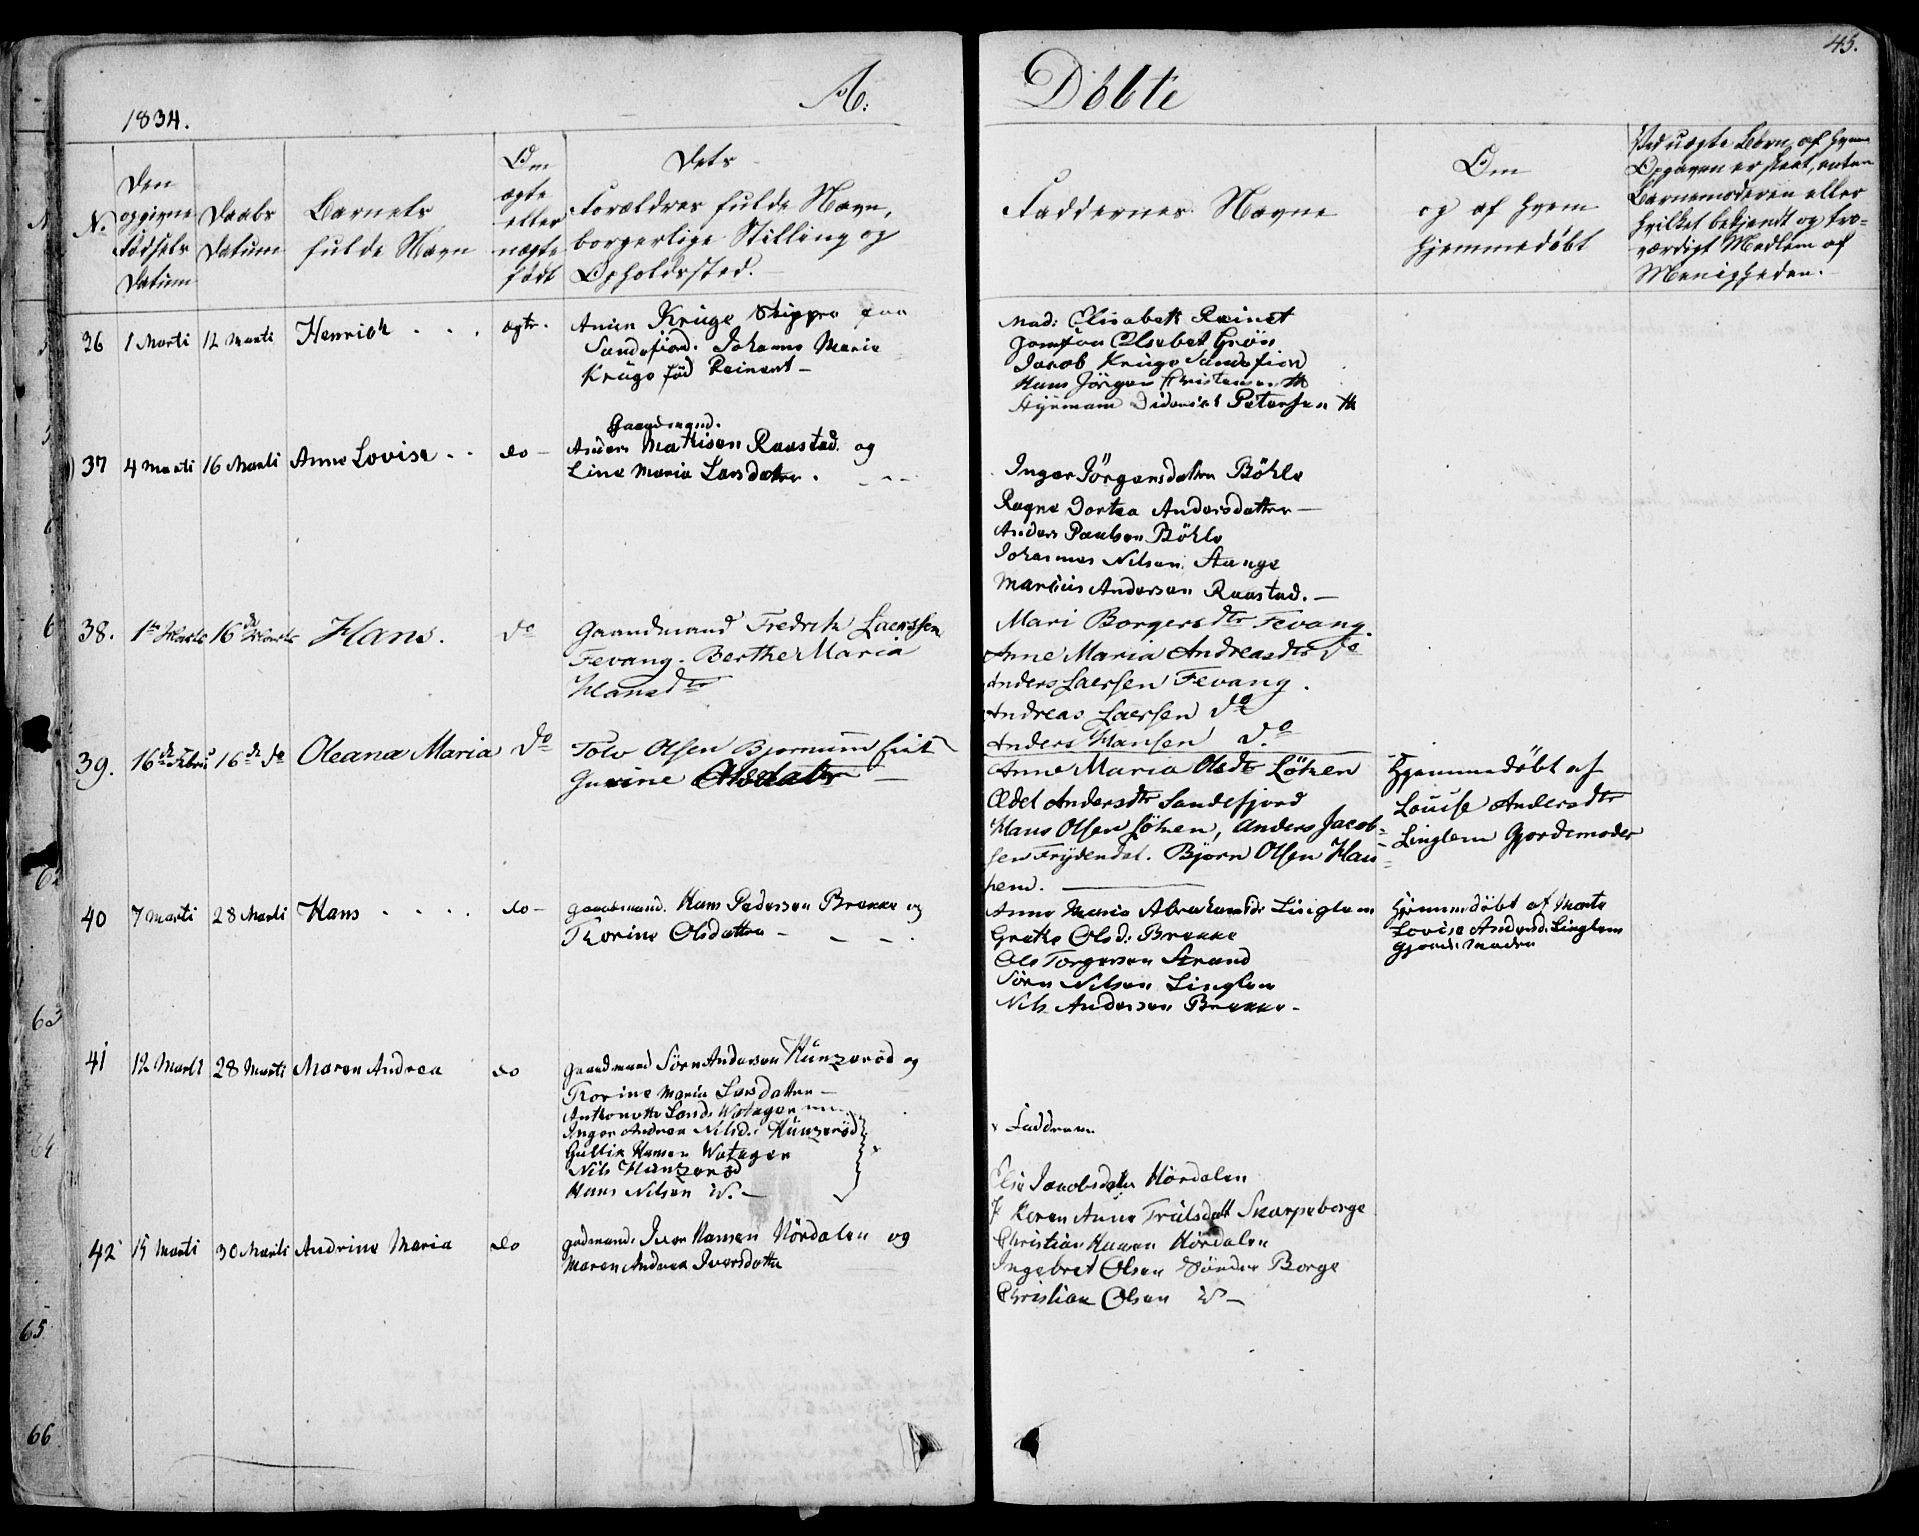 45.
1834.
A.
Döbte
N.
Den
opgivne
Födsels
Datum
Daabs
Datum
Barnets
fulde Navn
Om
ægte
eller
uægte
född
Dets
Forældres fulde Navn,
borgerlige Stilling og
Opholdssted.
Faddernes Navne
Om
og af hvem
hjemmedöbt
Ved uægte Börn, af hvem
Opgaven er skeet, enten
Barnemoderen eller
hvilket bekjendt og tro-
værdigt Medlem af
Menigheden.
36 1 Marti 12 Marti Henrich ægte.
Krüge Skipper paa
Sandefiord. Johanne Maria
Krüge föd Reinert
Mad: Elisabeth Reinert
Jomfru Elsebet Grön
Jacob Krüge Sandefiord
Hans Jörgen Christensen
Petersen
37 4 Marti 16 Marti Anne Lovise do
Gaardmand.
Anders Mathisen Raastad og
Line Maria Larsdatter.
Inger Jörgensdatter Böhle
Ragne Dortea Andersdatter
Anders Paulsen Böhle
Johannes Nilsen Stange
Marius Andersen Raastad.
38. 1 Marts 16de Marts Hans. do
Gaardmand Fredrik Laerssen
Fevang. Berthe Maria
Hansdtr
Mari Borgersdtr Fevang.
Anne Maria Andreasdtr do
Anders Laersen Fevang.
Andreas Laersen do
Anders Hansen do
39. 16de Febru 16de do Oleana Maria do
Tolv Olsen Bjornum
Gurine Olsdatr
Anne Maria Olsdtr Lökzen
Ædel Andersdtr Sandefjord
Hans Olsen Lökzen, Anders Jacob-
sen Frydendal. Björn Olsen Hau-
kem.
Hjemmedöbt af
Louise Andersdtr
Linglem Gjordemoder
40 7 Marti 28 Marti Hans do
Gaardmand. Hans Pedersen Brekke og
Thorine Olsdatter
Anne Maria Abrahamsdr Linglem
Grethe Olsd: Brekke
Ole Torgersen Strand
Sörn Nilsen Linglem
Nils Andersen Brekke
Hjemmedöbt af
Lovise Andersd: Linglem
41 12 Marti 28 Marti Maren Andrea do
Gaardmand Sörn Andersen Hunzeröd og
Thorine Maria Larsdatter
Anthonette Larsd:
Inger Andrea Nilsd: Hunzeröd
Gullik Hansen
Nils Hunzeröd
Hans Nilsen
Faddrene
42 15 Marti 30 Marti Andrine Maria do
Iver Hansen Hördalen og
Maren Andrea Iversdatter
Elie Jacobsdatter Hördalen
Karen Anne Trulsdatt Skarpeborge
Christian Hansen Hördalen
Ingebret Olsen Sönder Borge
Christian Olsen
63
64
65
66